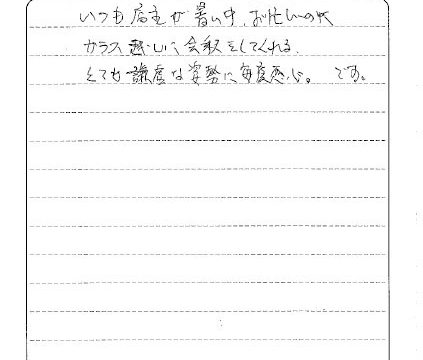 いつも店主が暑い中、お忙しいのに
ガラス越しに会釈をしてくれる。
とても謙虚な姿勢に毎度感心。です。